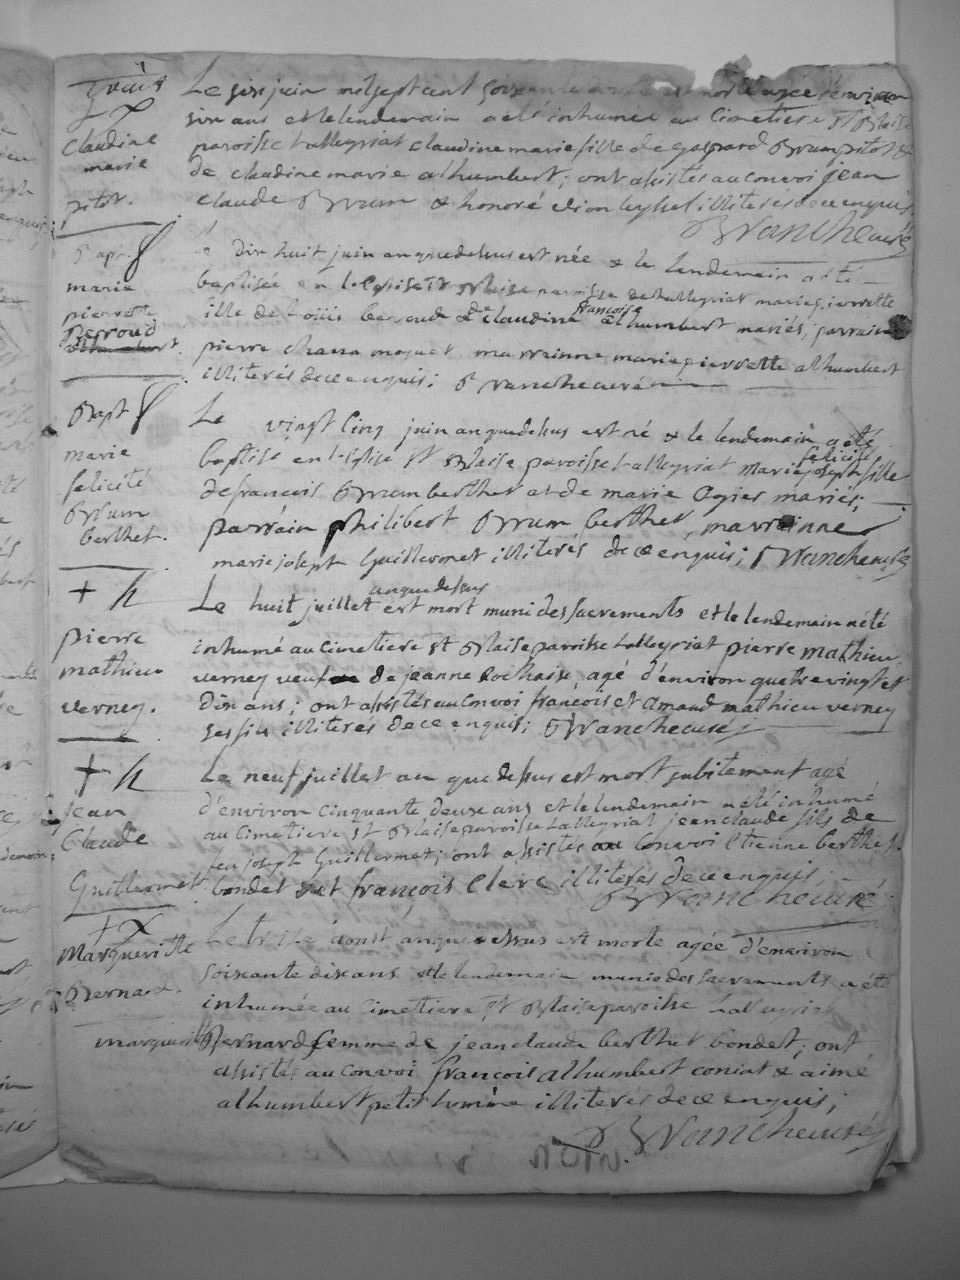 claudine
marie
pitot.
Le six juin mil sept cent morte agée d'environ
six ans et le lendemain a eté inhumée au Cimetiere St Blaise
paroisse talleyriat claudine marie fille de gaspard Brum pitot &
de claudine marie alhumbert; ont assistés au convoi jean
claude Brum & honoré illiterés de ce enquis.
Brancheuré
Bapt
marie
pierrette
Berroud
Le Dix huit juin an que dessus est née & le lendemain a eté
baptisée en l'eglise St Blaise paroisse de talleyriat marie pierrette
fille de beroud & de claudine françoise alhumbert mariés; parrain
pierre moquet marrainne marie pierrette alhumbert
illiterés de ce enquis; Brancheuré
Bapt
marie
felicité
Brum
berthet.
Le vingt Cinq juin an que dessus est né & le lendemain a eté
baptisé en l'Eglise St Blaise paroisse talleyriat marie felicité joseph fille
de francois Brum berthet et de marie Ogier mariés;
parrain philibert Brum berthet, marrainne
marie joseph Guillermet illiterés de ce enquis; Brancheuré
+ h
pierre
mathieu
verney.
Le huit juillet an que dessus est mort muni des sacrements et le lendemain a été
inhumé au Cimetiere St Blaise paroisse talleyriat pierre mathieu
verney veuf de jeanne Rochaix, agé d'environ quatrevingt et
dix ans; ont assistés au convoi françois et Amaud mathieu verney
ses fils illiterés de ce enquis; Brancheuré
+ h
jean
Claude
Guillermet
Le neuf juillet an que dessus est mort subitement agé
d'environ cinquante deux ans et le lendemain a été inhumé
au Cimetiere St Blaise paroisse talleyriat jean claude fils de
feu joseph Guillermet; ont assistés au Convoi Etienne berthet
bondet et françois Clerc illiterés de ce enquis;
Brancheuré
Margueritte
Bernard.
Le août an que dessus est morte agée d'environ
soixante dix ans et le lendemain munie des sacrements a été
inhumée au cimetiere St Blaise paroisse talleyriat
marguerite Bernard femme de jean claude berthet bondet; ont
assistés au convoi françois alhumbert coniat & aimé
alhumbert petit homme illiterés de ce enquis;
Brancheuré